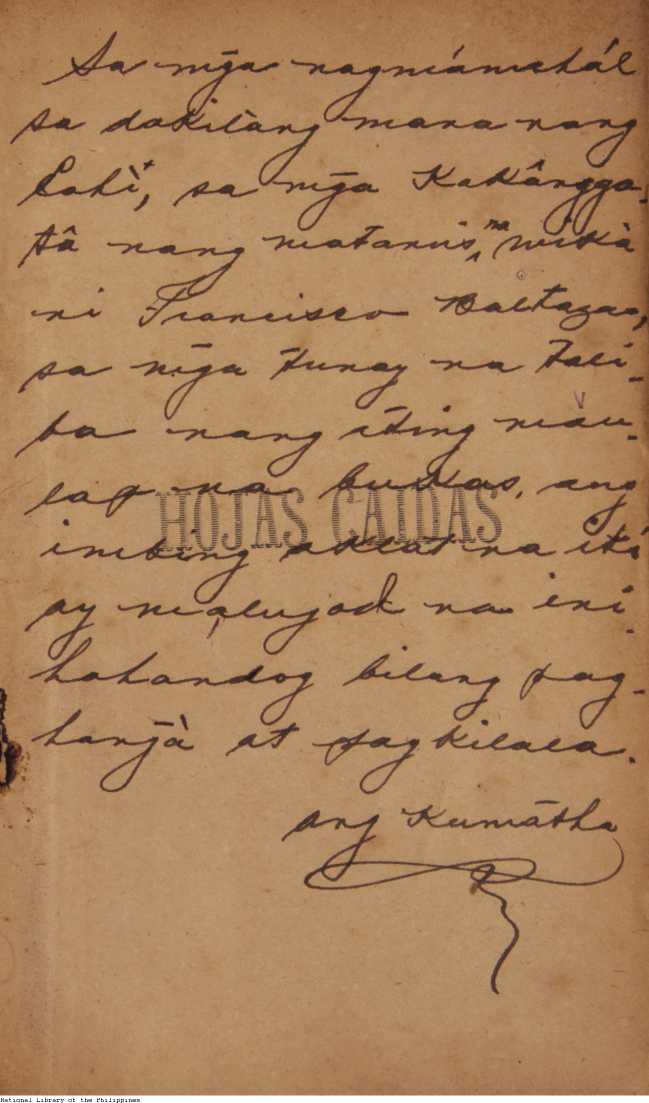 Sa mg̃a nagmámahál
sa dakilàng mana nang
Lahì, sa mg̃a Kakângga-
tâ nang matamis na wikà
ni Francisco Baltazar,
sa mg̃a tunay na tali-
ba nang áting máu-
lap na bukas, ang
HOJAS CAIDAS
imbíng aklat na itó
ay malugod na ini-
hahandog bilang pag-
hang̃à at pagkilala.
ang Kumátha
National Library of the Philippines